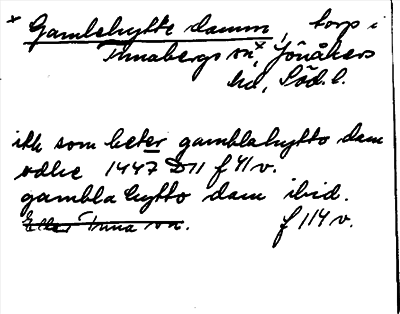 * Gamlehytte damm, torp i
Tunabergs sn*, Jönåkers
hd, Söd. l.
itk som heter gamblahytto dam
odhe 1447 D11 f 41 v.
gambla hytto dam ibid.
f 114 v.